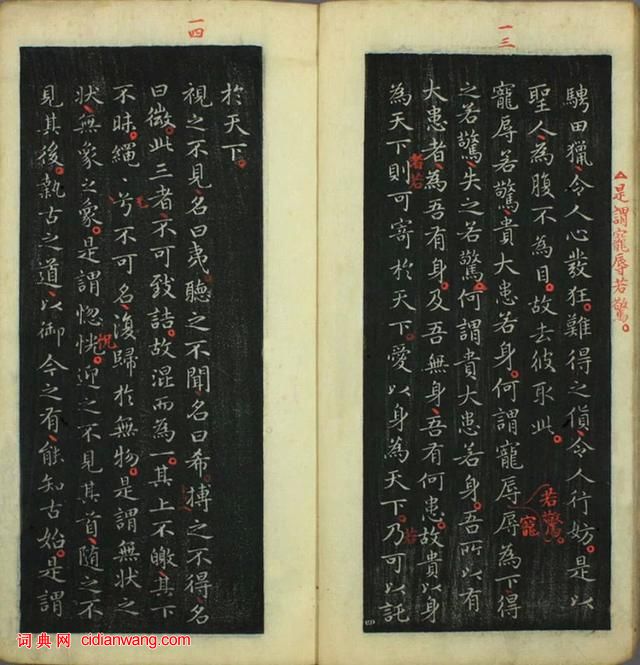 一三
△是謂寵辱若驚。
騁田獵、令人心發狂、難得之貨、令人行妨。是以
聖人為腹不為目。故去彼取此。
寵辱若驚、貴大患若身。何謂寵辱、辱為下、得
若驚。
寵
之若驚、失之若驚。何謂貴大患若身。吾所以有
大患者、為吾有身。及吾無身、吾有何患。故貴以身
者若
為天下則可寄於天下。愛以身為天下、乃可以託
若
一四
於天下。
視之不見、名曰夷、聽之不聞、名曰希、搏之不得、名
曰微。此三者、不可致詰。故混而為一。其上不皦、其下
不昧、繩〻兮不可名、復歸於無物。是謂無狀之
狀、無象之象。是謂惚恍。迎之不見其首、隨之不
見其後。執古之道、以御今之有、能知古始。是謂
词典网 cidianwang.com